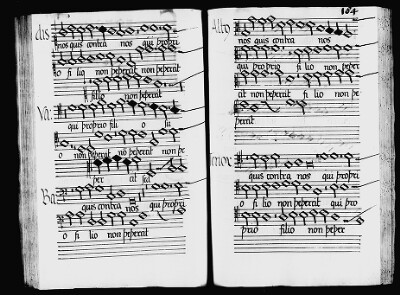 nos quis contra nos qui propri
o fi lio non peperit non peperit
filio non peperit
qui proprio fili o su
o non peperit nõ peperit non pe
per
Ba
quis contra nos qui propri
o fi lio non peperit
104
Alto
nos quis contra nos
qui proprio fi lio non peper
cit non peperit fi lio non pe
percit
Tenor
quis contra nos qui propri
o fi lio non peperit qui pro
prio filio non peper